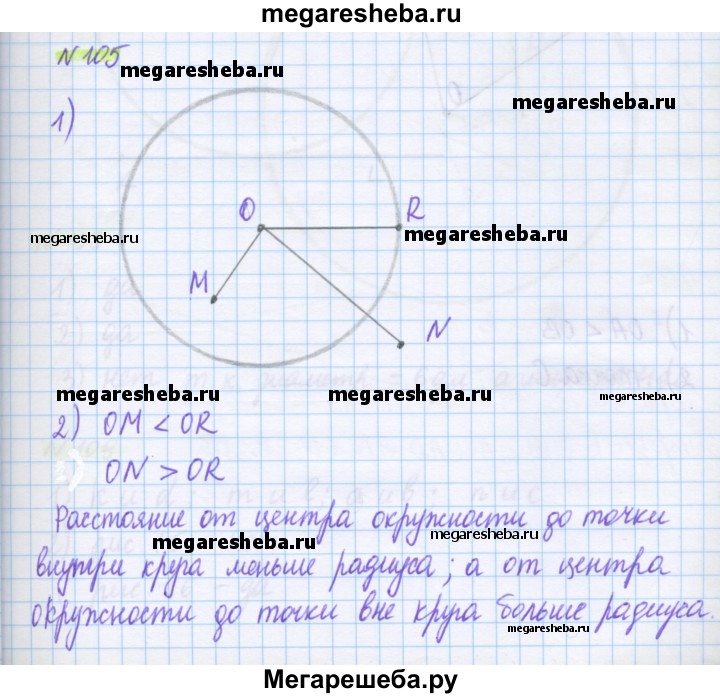 megaresheba.ru
N 105
megaresheba.ru
megaresheba.ru
1)
O
R
megaresheba.ru
megaresheba.ru
M
N
megaresheba.ru
megaresheba.ru
megaresheba.ru
2) OM < OR
ON > OR
Расстояние от центра окружности до точки
megaresheba.ru
megaresheba.ru
внутри круга меньше радиуса; а от центра
окружности до точки вне круга больше радиуса.
megaresheba.ru
Мегарешеба.ру